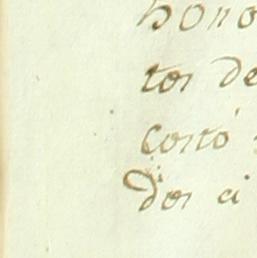 hono
tos de
costó
dos ci